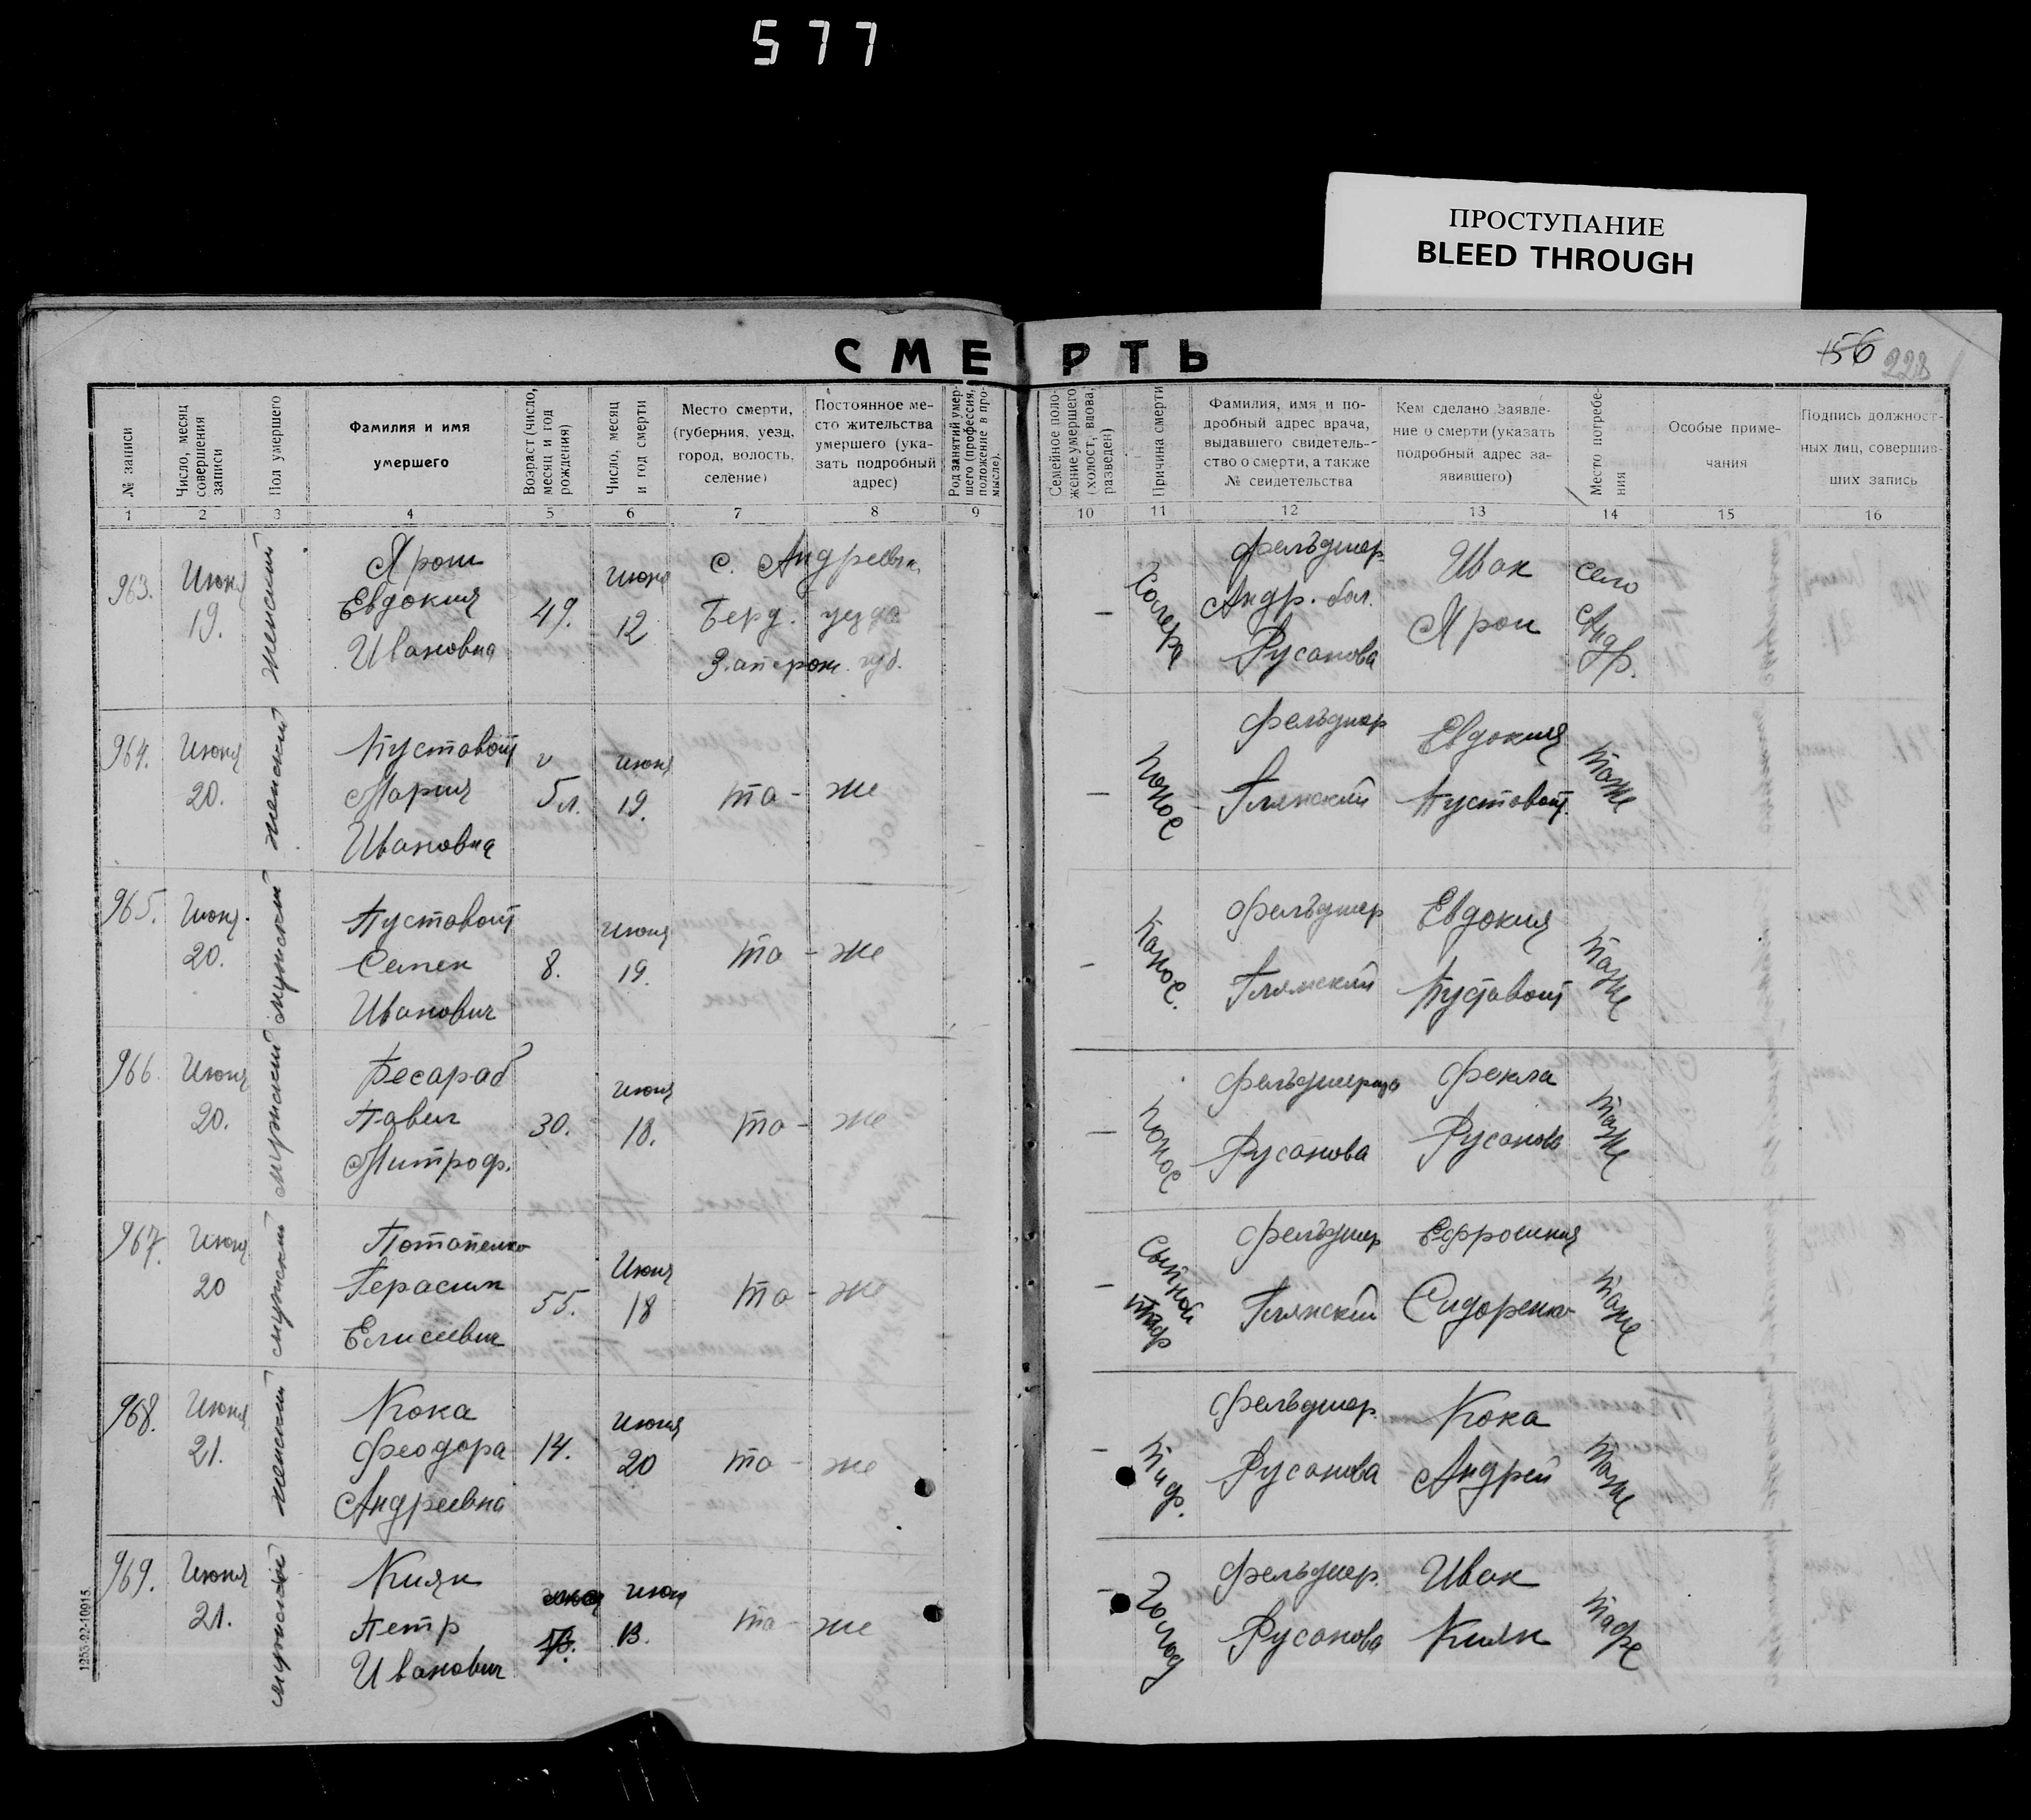 577
ПРОСТУПАНИЕ
BLEED THROUGH
СМЕРТЬ
156 228
№ записи
Число, месяц совершения записи
Пол умершего
Фамилия и имя
умершего
Возраст (число, месяц и год рождения)
Число, месяц и год смерти
Место смерти,
(губерния, уезд,
город, волость,
селение)
Постоянное ме-
сто жительства
умершего (ука-
зать подробный
адрес)
Род занятий умер-
шего (профессия,
положение в про-
мысле).
Семейное поло-
жение умершего
(холост, вдова,
разведен)
Причина смерти
Фамилия, имя и по-
дробный адрес врача,
выдавшего свидетель-
ство о смерти, а также
№ свидетельства
Кем сделано заявле-
ние о смерти (указать
подробный адрес за-
явившего)
Место погребе-
ния
Особые приме-
чания
Подпись должност-
ных лиц, совершив-
ших запись
1 2 3 4 5 6 7 8 9 10 11 12 13 14 15 16
963. Июня 19. женский
Ярош
Евдокия
Ивановна
49. июня 12
с. Андреевк.
Берд. уезда
Запорож. губ.
— Холера
фельдшер
Андр. бол.
Русанова
Иван
Ярош
село
Андр.
964. Июня 20. женский
Пустовойт
Мария
Ивановна
5 л. июня 19. то - же
— Понос
фельдшер
Глянский
Евдокия
Пустовойт.
тоже
965. Июня 20. мужский
Пустовойт
Семен
Иванович
8. июня 19. то - же
— Понос.
фельдшер
Глянский
Евдокия
Пустовойт
тоже
966. Июня 20. мужский
Бесараб
Павел
Митроф.
30. июня 18. то - же
— Понос
фельдшерица
Русанова
Фекла
Русанова
тоже
967. Июня 20 мужский
Потапенко
Герасим
Елисеевич
55. Июня 18 то - же
— Сыпной тиф
фельдшер
Глянский
Ефросиния
Сидоренко
тоже
968. Июня 21. женский
Кока
Феодора
Андреевна
14. июня 20 то - же
— Тиф.
фельдшер.
Русанова
Кока
Андрей
тоже
969. Июня 21. мужской
Кияк
Петр
Иванович
июня 13. то - же
— Голод
фельдшер.
Русанова
Иван
Кияк
тоже
1253-22-10915